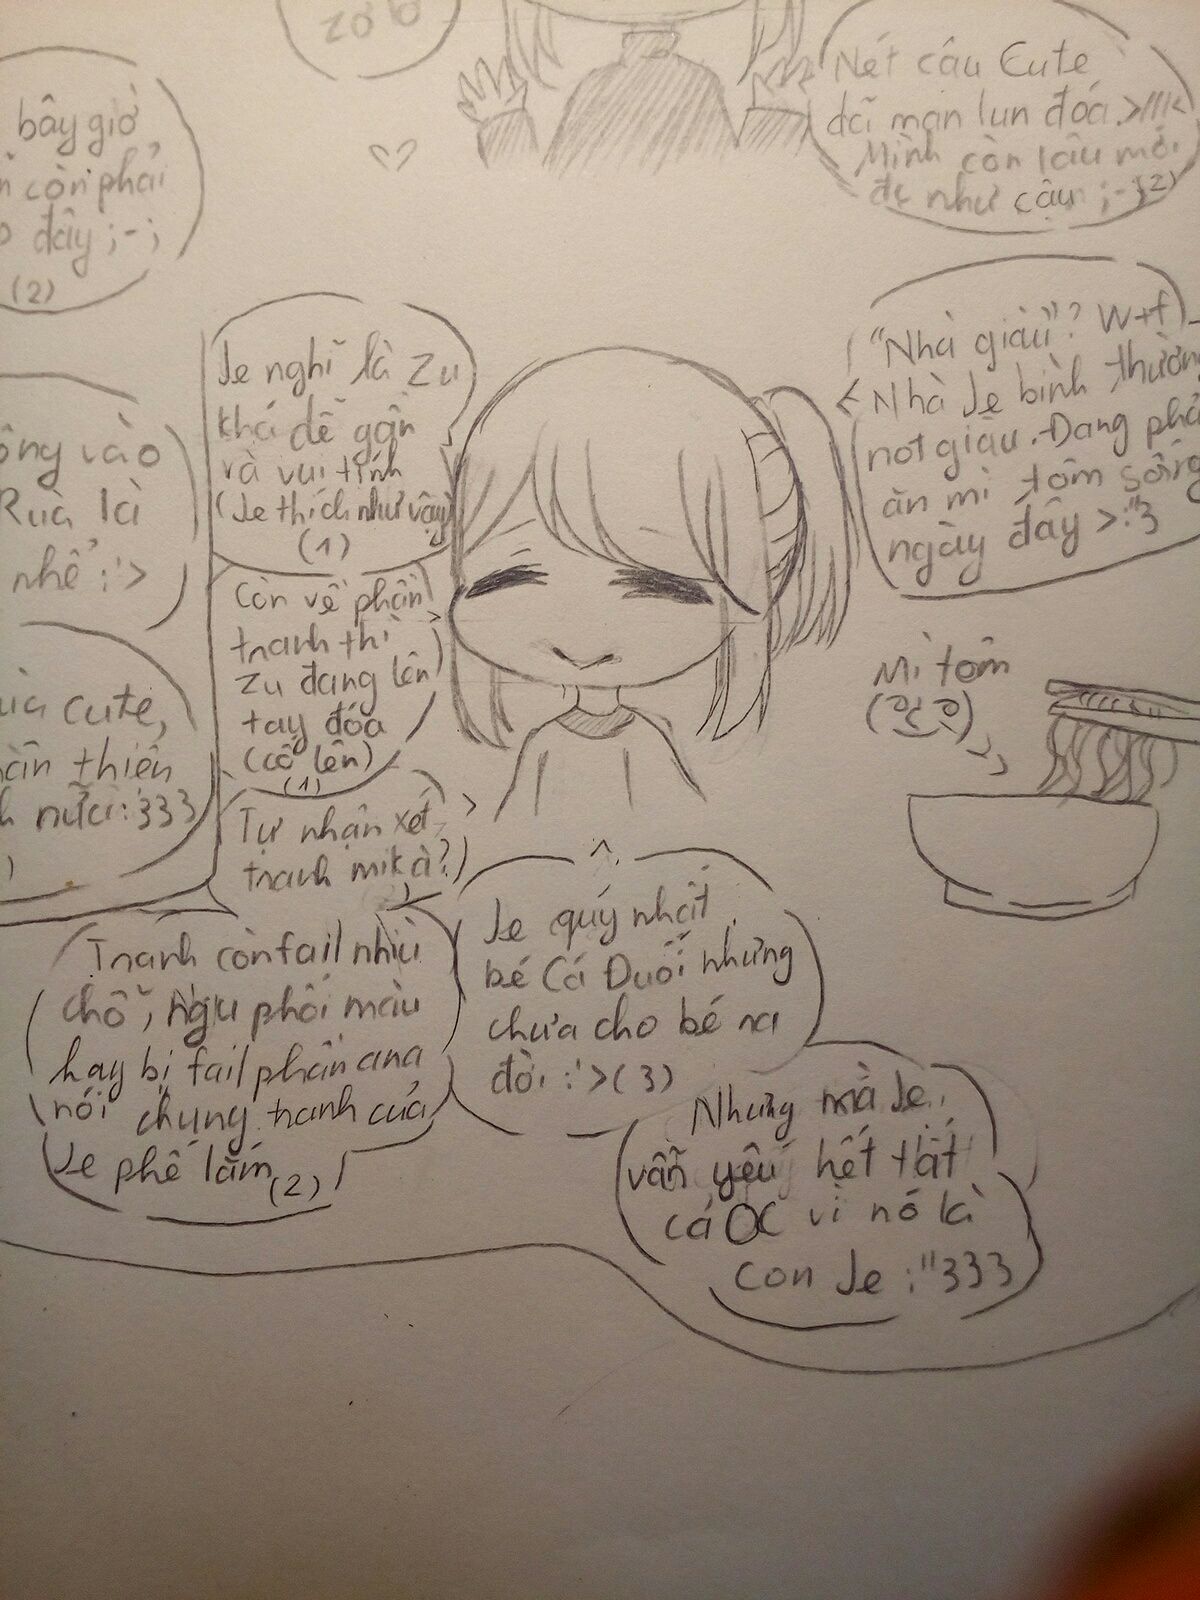 zơ
bây giờ
còn phải
đây ;-;
(2)
Nét cậu Cute
dã man lun đóa >///<
Mình còn lâu mới
đc như cậu ;-;(2)
"Nhà giàu"? Wtf
Nhà Je bình thường
not giàu. Đang phải
ăn mì tôm sống
ngày đây >:"3
Je nghĩ là Zu
khá dễ gần
và vui tính
(Je thích như vậy)
(1)
vào
Rùa là
nhể :'>
Còn về phần
tranh thì
Zu đang lên
tay đóa
(cố lên)
(1)
Mì tôm
cute,
thiên
nữa :'333
Tự nhận xét
tranh mik à?
Tranh còn fail nhìu
chỗ, Ngu phối màu
hay bị fail phần ana
nói chung tranh của
Je phế lắm (2)
Je quý nhất
bé Cá Đuối nhưng
chưa cho bé ra
đời :'>(3)
Nhưng mà Je
vẫn yêu hết tất
cả OC vì nó là
con Je :"333